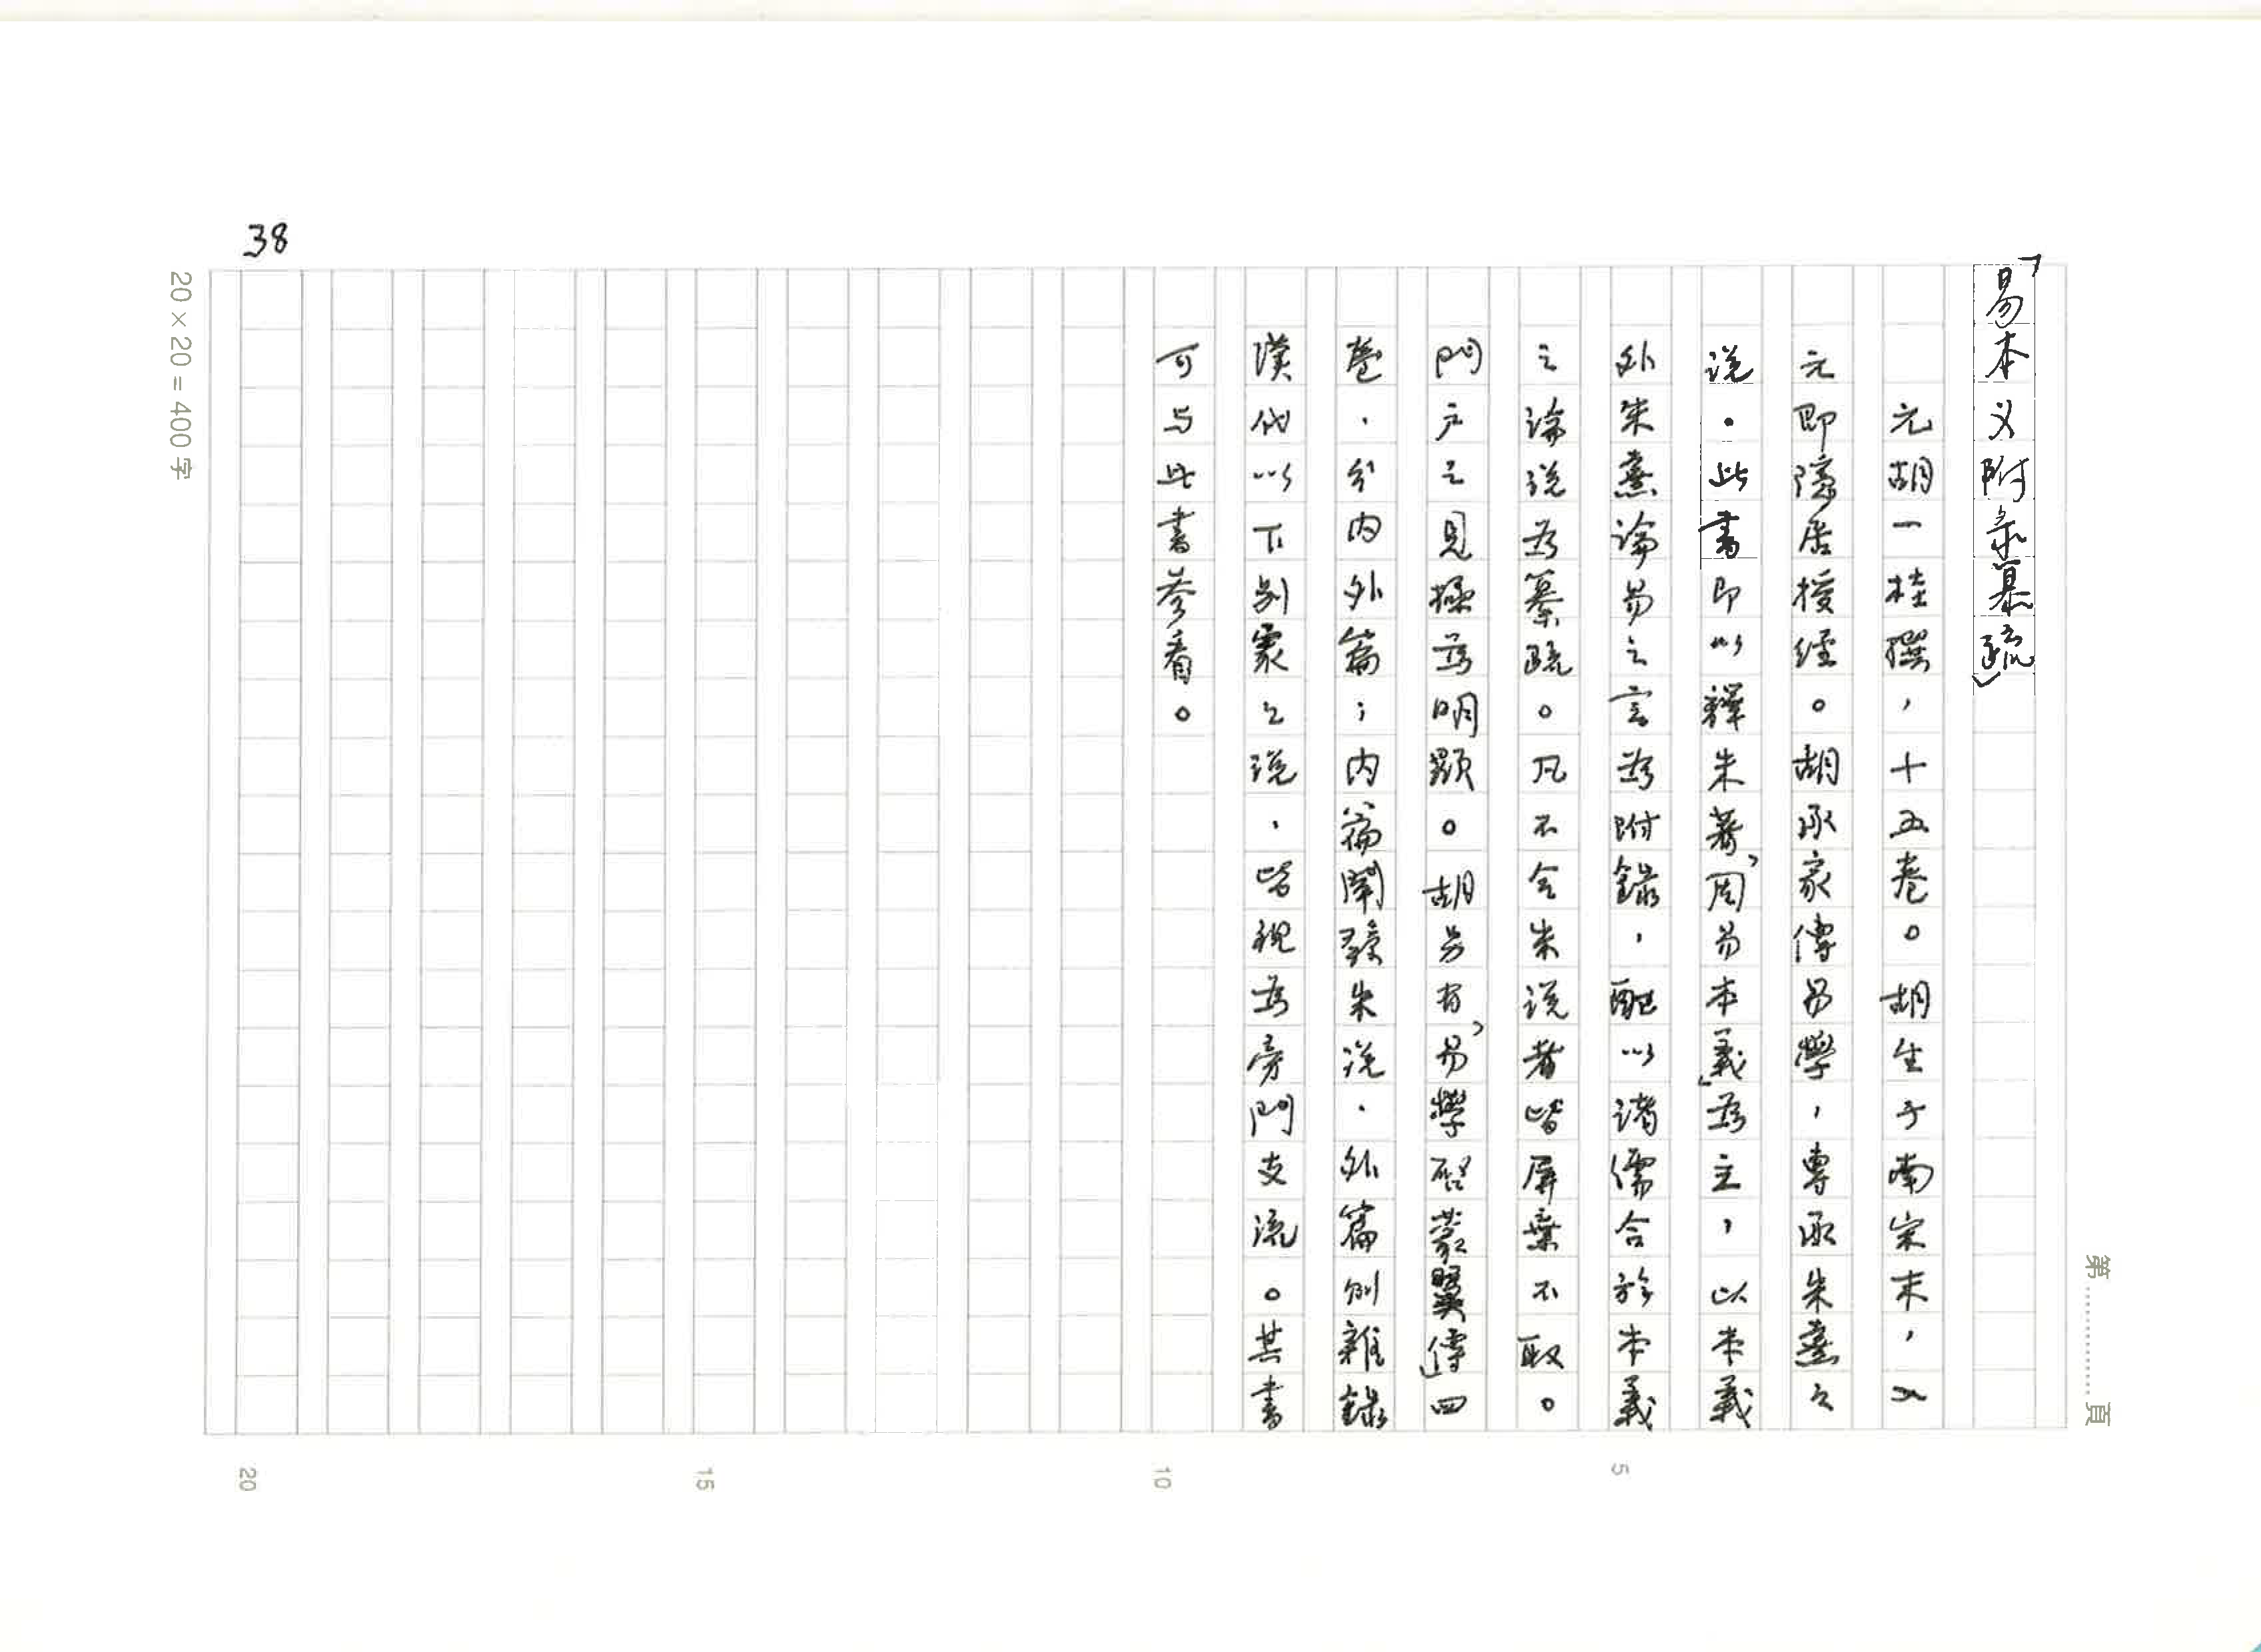 「易本义附录纂疏」
元胡一桂撰，十五卷。胡生于南宋末，入
元即隐居授經。胡承家傳易學，專承朱熹之
说．此書即以釋朱著「周易本義」為主，以本義
外朱熹論易之言為附錄，配以諸儒合於本義
之論说為纂疏。凡不合朱说者皆屏棄不取。
門户之見極為明顯。胡另有「易學啓蒙翼傳」四
卷．分内外篇；内篇闡發朱说．外篇則雜錄
漢代以下别家之说．皆視為旁門支流。其書
可与此書参看。
38
20×20＝400字
第 頁
5
10
15
20